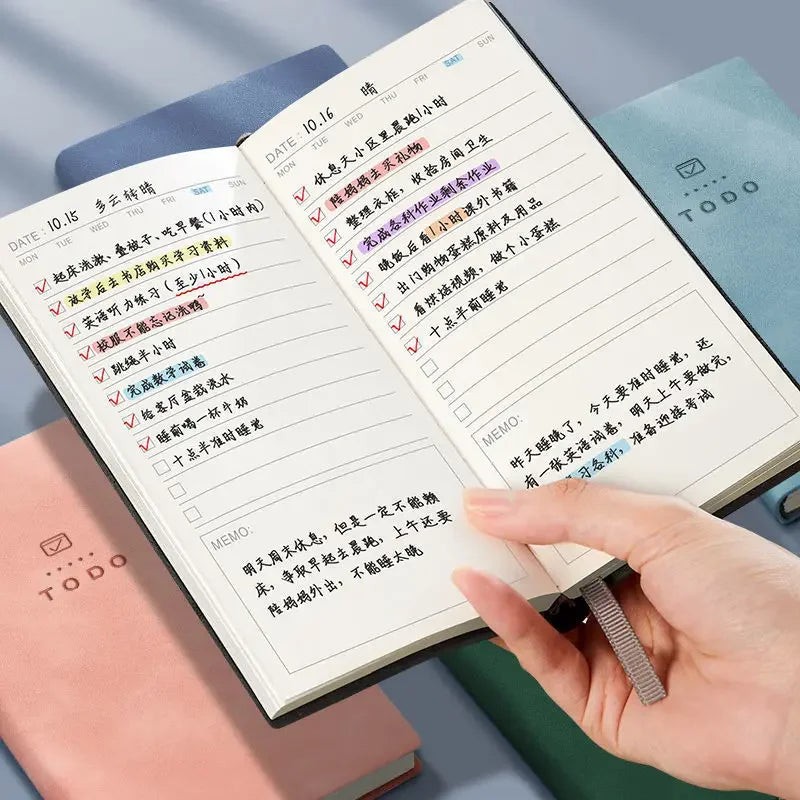 DATE: 10.15 多云转晴
MON TUE WED THU FRI SAT SUN
起床洗漱、叠被子、吃早餐(1小时内)
放学后去书店购买学习资料
英语听力练习(至少1小时)
校服不能忘记洗鸭~
跳绳半小时
完成数学试卷
给客厅盆栽浇水
睡前喝一杯牛奶
十点半准时睡觉
MEMO:
明天周末休息,但是一定不能赖
床,争取早起去晨跑,上午还要
陪妈妈外出,不能睡太晚
DATE: 10.16 晴
MON TUE WED THU FRI SAT SUN
休息天小区里晨跑1小时
陪妈妈去买礼物
整理衣柜,收拾房间卫生
完成各科作业剩余作业
晚饭后看1小时课外书籍
出门购物蛋糕原料及用品
看烘焙视频,做个小蛋糕
十点半前睡觉
MEMO:
昨天睡晚了,今天要准时睡觉,还
有一张英语试卷,明天上午要做完,
习各科,准备迎接考试
TODO
TODO